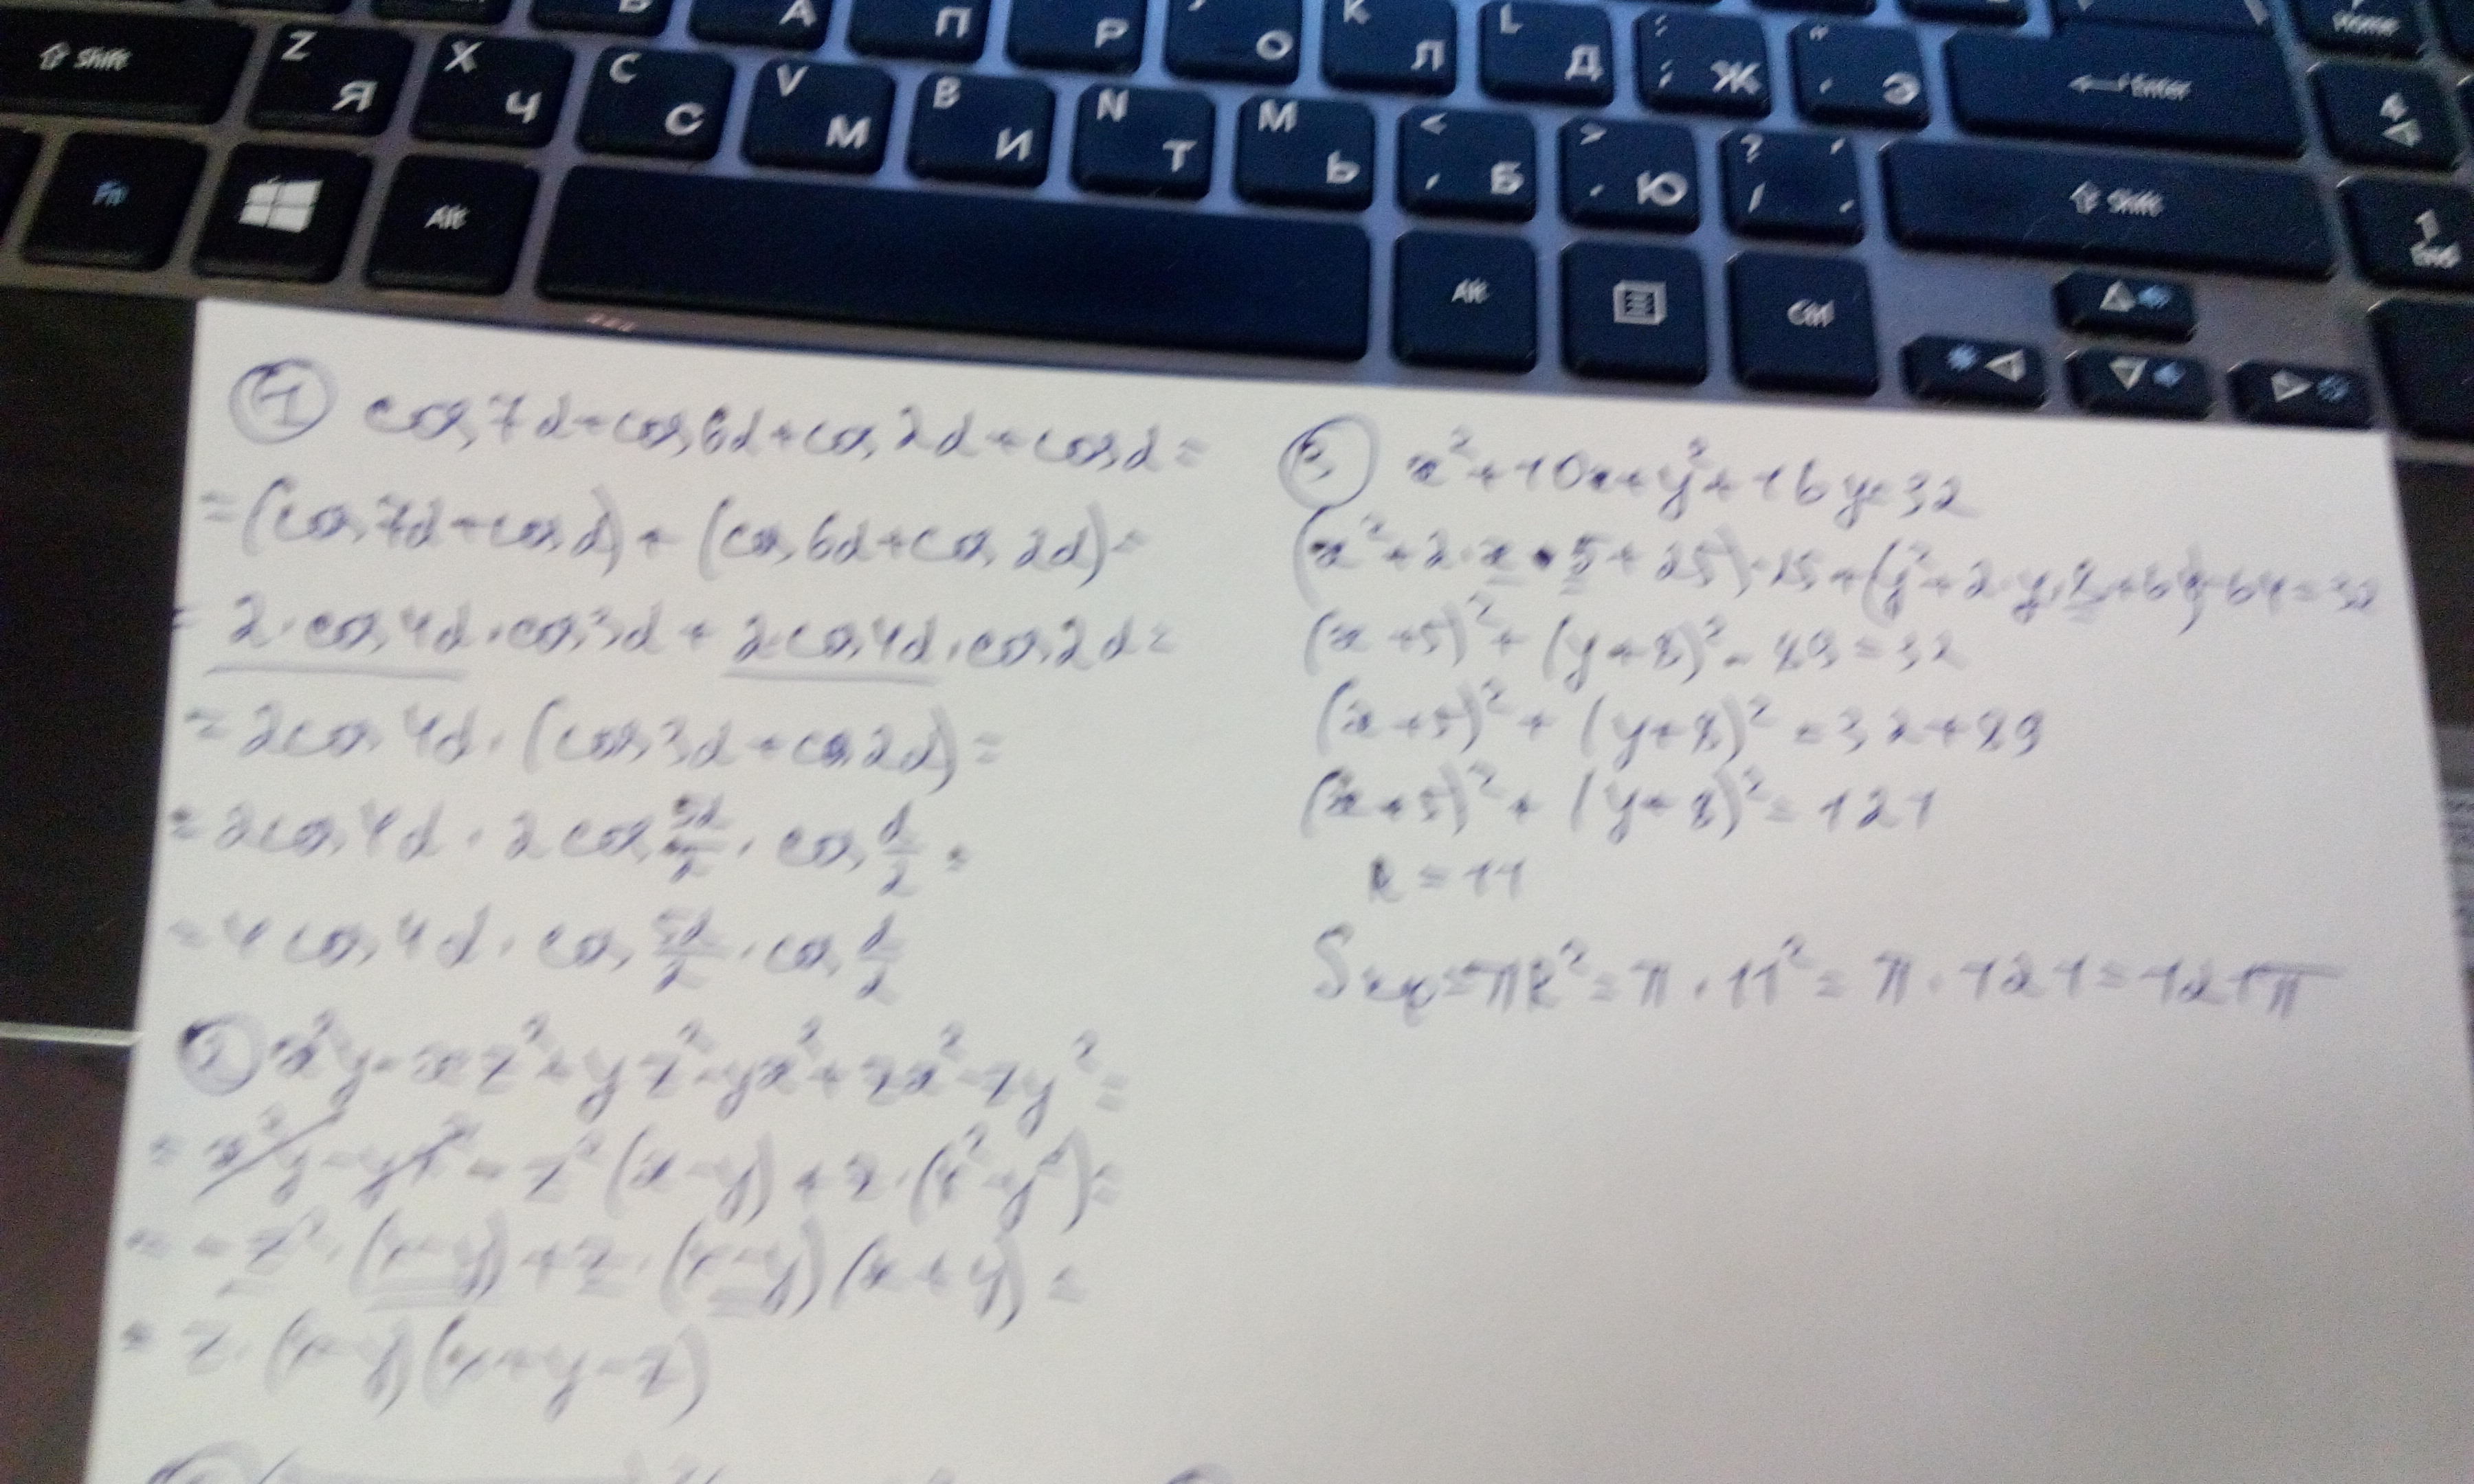 A П Р О K Л L Д : ; Ж " Э Enter Home
Shift Z Я X Ч C С V М B И N Т M Ь < , Б > . Ю ? / , . Shift 1 End
Fn Alt Alt Ctrl
① cos 7α + cos 6α + cos 2α + cos α =
= (cos 7α + cos α) + (cos 6α + cos 2α) =
= 2 · cos 4α · cos 3α + 2 cos 4α · cos 2α =
= 2 cos 4α · (cos 3α + cos 2α) =
= 2 cos 4α · 2 cos 5α/2 · cos α/2 =
= 4 cos 4α · cos 5α/2 · cos α/2
② x²y - xz² + yz² - yx² + zx² - zy² =
= x²y - yx² - z²(x-y) + z · (x² - y²) =
= - z² · (x-y) + z · (x-y)(x+y) =
= z · (x-y)(x+y-z)
x² + 10x + y² + 16y = 32
(x² + 2 · x · 5 + 25) - 25 + (y² + 2 · y · 8 + 64) - 64 = 32
(x+5)² + (y+8)² - 89 = 32
(x+5)² + (y+8)² = 32 + 89
(x+5)² + (y+8)² = 121
R = 11
Sкр = πR² = π · 11² = π · 121 = 121π